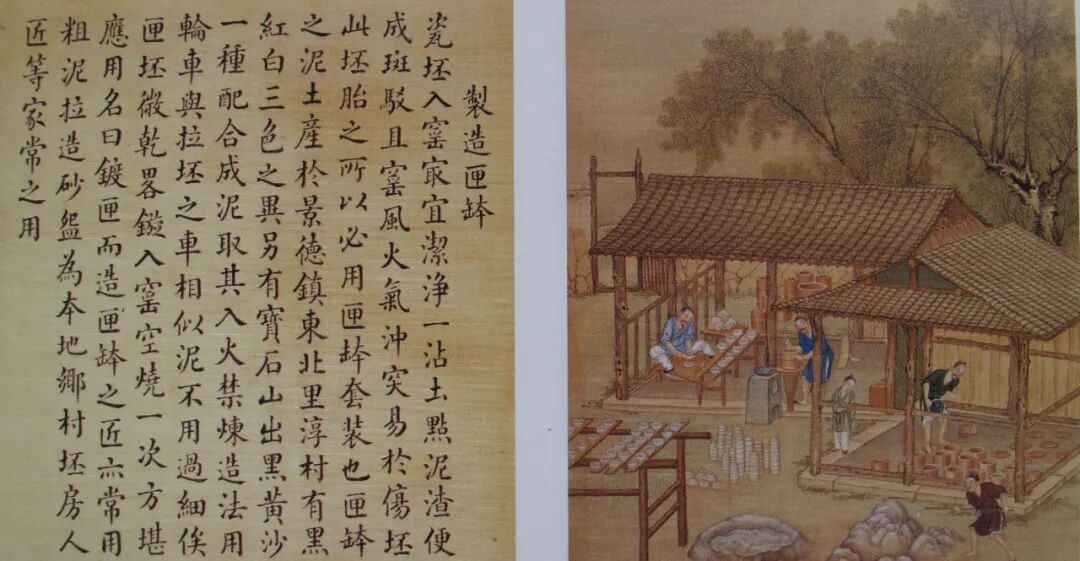 製造匣鉢
瓷坯入窰㝡宜潔淨一沾土點泥渣便
成斑駁且窰風火氣沖突易於傷坯
此坯胎之所以必用匣鉢套裝也匣鉢
之泥土產於景德鎮東北里淳村有黑
紅白三色之異另有寶石山出黑黃沙
一種配合成泥取其入火禁煉造法用
輪車與拉坯之車相似泥不用過細俟
匣坯微乾畧鏇入窰空燒一次方堪
應用名曰鍍匣而造匣鉢之匠亦常用
粗泥拉造砂盌為本地鄉村坯房人
匠等家常之用